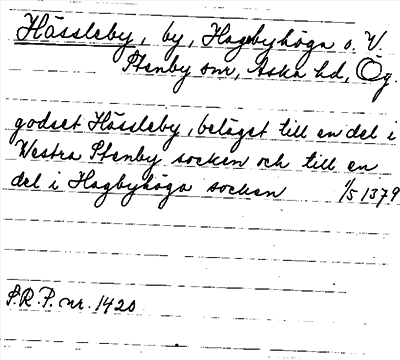 Hässleby, by, Hagebyhöga o. V.
Stenby snr, Aska hd, Ög.
godset Hässleby, beläget till en del i
Westra Stenby socken och till en
del i Hagbyhöga socken 1/5 1379
S.R.P. nr. 1420